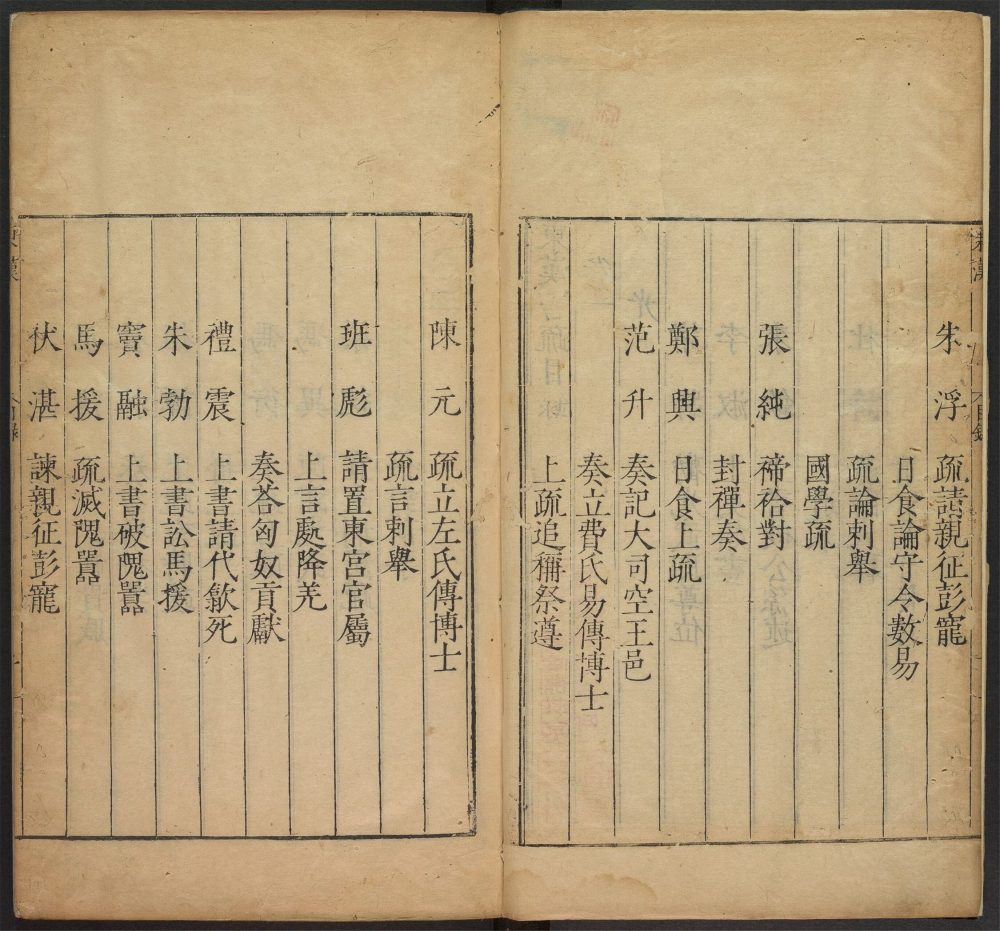 朱浮 疏請親征彭寵
日食論守令數易
疏論刺舉
國學疏
張純 禘祫對
封禪奏
鄭興 日食上疏
范升 奏記大司空王邑
奏立費氏易傳博士
上疏追稱祭遵
陳元 疏立左氏傳博士
疏言刺舉
班彪 請置東宮官屬
上言處降羌
奏荅匈奴貢獻
禮震 上書請代歙死
朱勃 上書訟馬援
竇融 上書破隗囂
馬援 疏滅隗囂
伏湛 諫親征彭寵